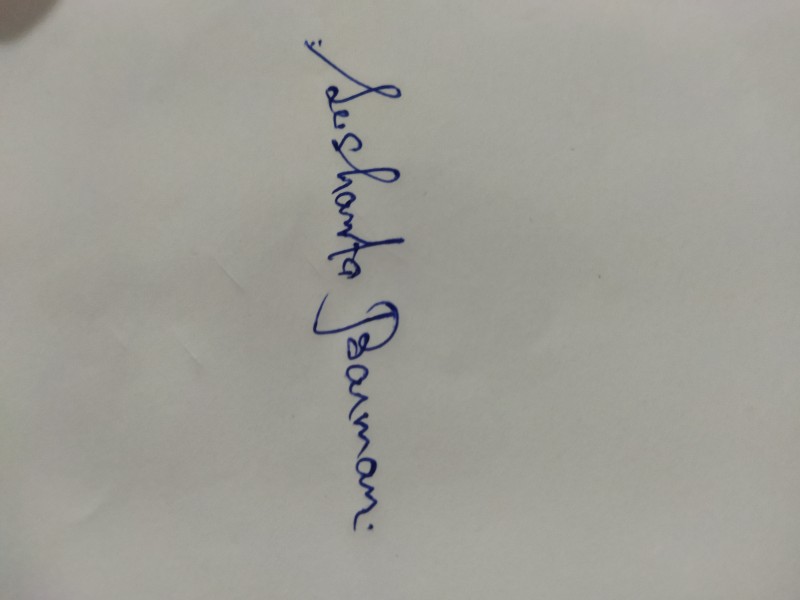 Sushanta Barman.